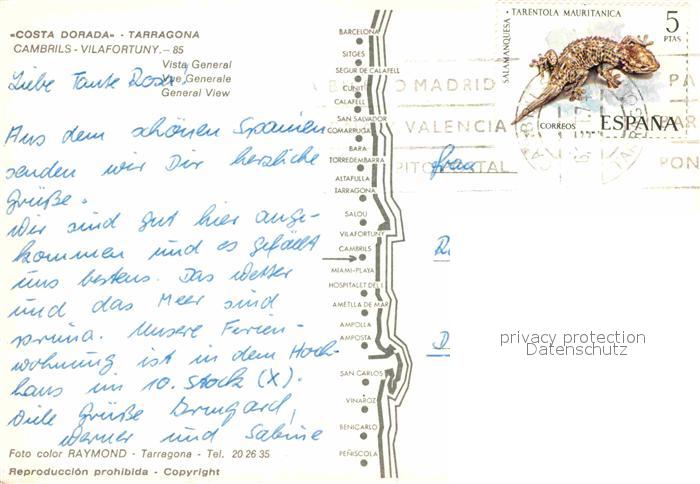 «COSTA DORADA» - TARRAGONA
CAMBRILS - VILAFORTUNY. - 85
Vista General
Vue Generale
General View
Liebe Tante Rosa,
Aus dem schönen Spanien
senden wir Dir herzliche
Grüße.
Wir sind gut hier ange-
kommen und es gefällt
uns bestens. Das Wetter
und das Meer sind
prima. Unsere Ferien-
wohnung ist in dem Hoch-
haus im 10. Stock (X).
Viele Grüße Irmgard,
Werner und Sabine
Foto color RAYMOND - Tarragona - Tel. 20 26 35
Reproducción prohibida - Copyright
BARCELONA
SITGES
SEGUR DE CALAFELL
CUNIT
CALAFELL
SAN SALVADOR
COMARRUGA
BARA
TORREDEMBARRA
ALTAFULLA
TARRAGONA
SALOU
VILAFORTUNY
CAMBRILS
MIAMI-PLAYA
HOSPITALET DEL I.
AMETLLA DE MAR
AMPOLLA
AMPOSTA
SAN CARLOS
VINAROZ
BENICARLO
PEÑISCOLA
SALAMANQUESA - TARENTOLA MAURITANICA
5
PTAS
CORREOS
ESPAÑA
MADRID
Y VALENCIA
PAR
PON
Frau
R
D
privacy protection
Datenschutz